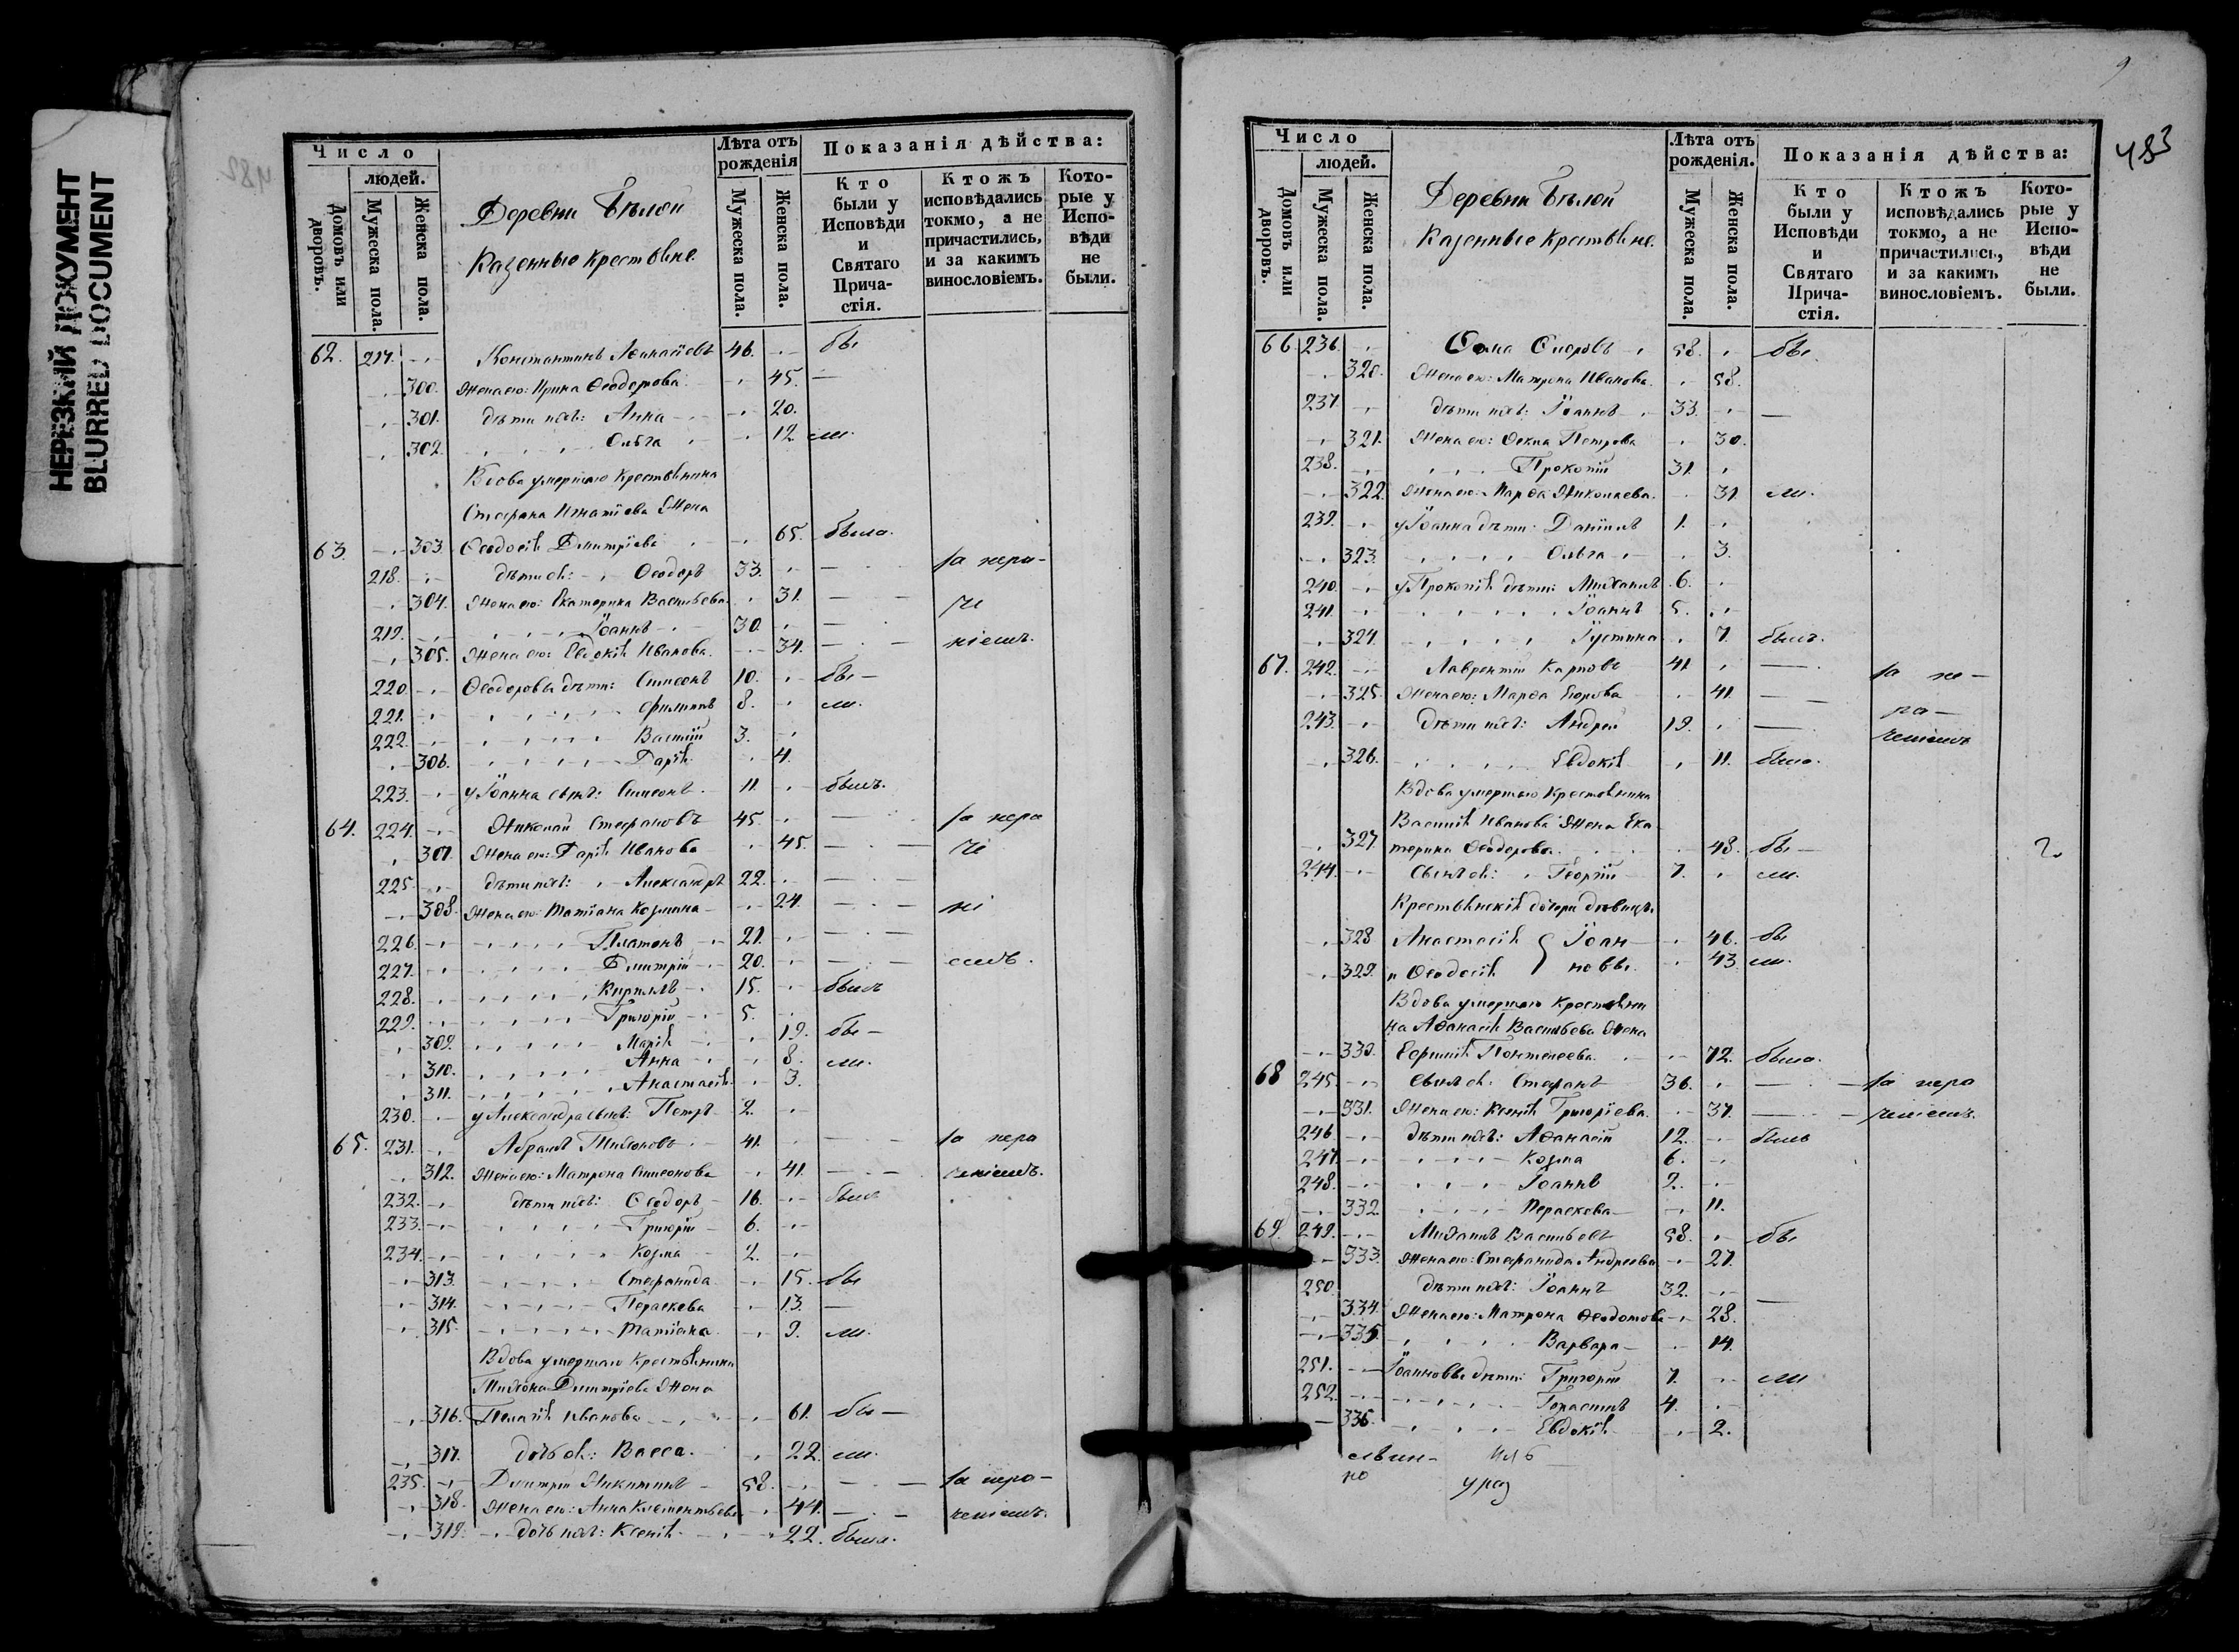 НЕРЕЗКИЙ ДОКУМЕНТ
BLURRED DOCUMENT
Число
людей.
Домовъ или дворовъ.
Мужеска пола.
Женска пола.
Деревни Бѣлой
Казенные крестьяне.
Лѣта отъ рожденія
Мужеска пола.
Женска пола.
Показанія дѣйства:
Кто были у Исповѣди и Святаго Прича-стія.
Ктожъ исповѣдались токмо, а не причастились, и за какимъ винословіемъ.
Кото-рые у Испо-вѣди не были.
62. 217. Константинъ 46. бы
300. Жена его: Ирина Ѳеодорова 45. —
301. дѣти ихъ: Анна 20.
302. Ольга 12. ли.
Вдова умершаго крестьянина
Стефана Игнатіева жена
63. 303. Ѳеодосія Дмитріева 65. была.
218. дѣти ея: Ѳеодоръ 33. — за нера-
304. Жена его: Екатерина Васильева 31. — че
219. Іоаннъ 30. —
305. Жена его: Евдокія Иванова 34. — ніемъ.
220. Ѳеодоровы дѣти: Симеонъ 10. бы —
221. Филиппъ 8. ли.
222. Василій 3.
306. Дарія 4.
223. у Іоанна сынъ: Симеонъ 11. былъ.
64. 224. Николай Стефановъ 45. — за нера
307. Жена его: Дарія Иванова 45. — че
225. дѣти ихъ: Александръ 22. —
308. Жена его: Татіана Козмина 24. — ні
226. Платонъ 21. —
227. Дмитрій 20. — емъ.
228. Кириллъ 15. былъ
229. Григорій 5.
309. Марія 19. бы —
310. Анна 8. ли.
311. Анастасія 3.
230. у Александра сынъ: Петръ 2.
65. 231. Абрамъ Тихоновъ 41. — за нера
312. Жена его: Матрона Симеонова 41. — ченіемъ.
232. дѣти ихъ: Ѳеодоръ 16. былъ
233. Григорій 6.
234. Козма 2.
313. Стефанида 15. бы
314. Пераскева 13. —
315. Татіана 9. ли.
Вдова умершаго крестьянина
Тихона Дмитріева жена
316. Пелагія Иванова 61. бы —
317. дочь ея: Васса. 22. ли.
235. Дмитрій Никитинъ 58. — за нера-
318. Жена его: Анна Климентьева 44. — ченіемъ.
319. дочь ихъ: Ксенія 22. была.
483
Число
людей.
Домовъ или дворовъ.
Мужеска пола.
Женска пола.
Деревни Бѣлой
Казенные крестьяне.
Лѣта отъ рожденія.
Мужеска пола.
Женска пола.
Показанія дѣйства:
Кто были у Исповѣди и Святаго Прича-стія.
Ктожъ исповѣдались токмо, а не причастились, и за какимъ винословіемъ.
Кото-рые у Испо-вѣди не были.
66. 236. Ѳома 58. бы
320. Жена его: Матрона Иванова 58.
237. дѣти ихъ: Іоаннъ 33. —
321. Жена его: Ѳекла Петрова 30.
238. Прокопій 31.
322. Жена его: Марѳа Николаева 31. ли.
239. у Іоанна дѣти: Даніилъ 1.
323. Ольга 3.
240. у Прокопія дѣти: Михаилъ 6.
241. Іоаннъ 5.
324. Іустина 7. былъ.
67. 242. Лаврентій Карповъ 41. — за не-
325. Жена его: Марѳа 41. — ра-
243. дѣти ихъ: Андрей 19. — ченіемъ
326. Евдокія 11. была.
Вдова умершаго крестьянина
Василія Иванова жена Ека
327. терина Ѳеодорова 48. бы —
244. Сынъ ея: Георгій 7. ли.
Крестьянскія дочери дѣвицы
328. Анастасія } Іоан 46. бы
329. и Ѳеодосія } новы. 43. ли.
Вдова умершаго крестьяни
на Аѳанасія Васильева жена
330. 72. была.
68 245. Сынъ ея: Стефанъ 36. — за нера
331. Жена его: Ксенія Григоріева 37. — ченіемъ.
246. дѣти ихъ: Аѳанасій 12. былъ
247. Козма 6.
248. Іоаннъ 2.
332. Пераскева 11.
69. 249. Михаилъ Васильевъ 58. бы
333. Жена его: Стефанида Андреева 27.
250. дѣти ихъ: Іоаннъ 32. —
334. Жена его: Матрона Ѳеодотова 28.
335. Варвара 14.
251. Іоанновы дѣти: Григорій 7. ли
252. Герасимъ 4.
336. Евдокія 2.